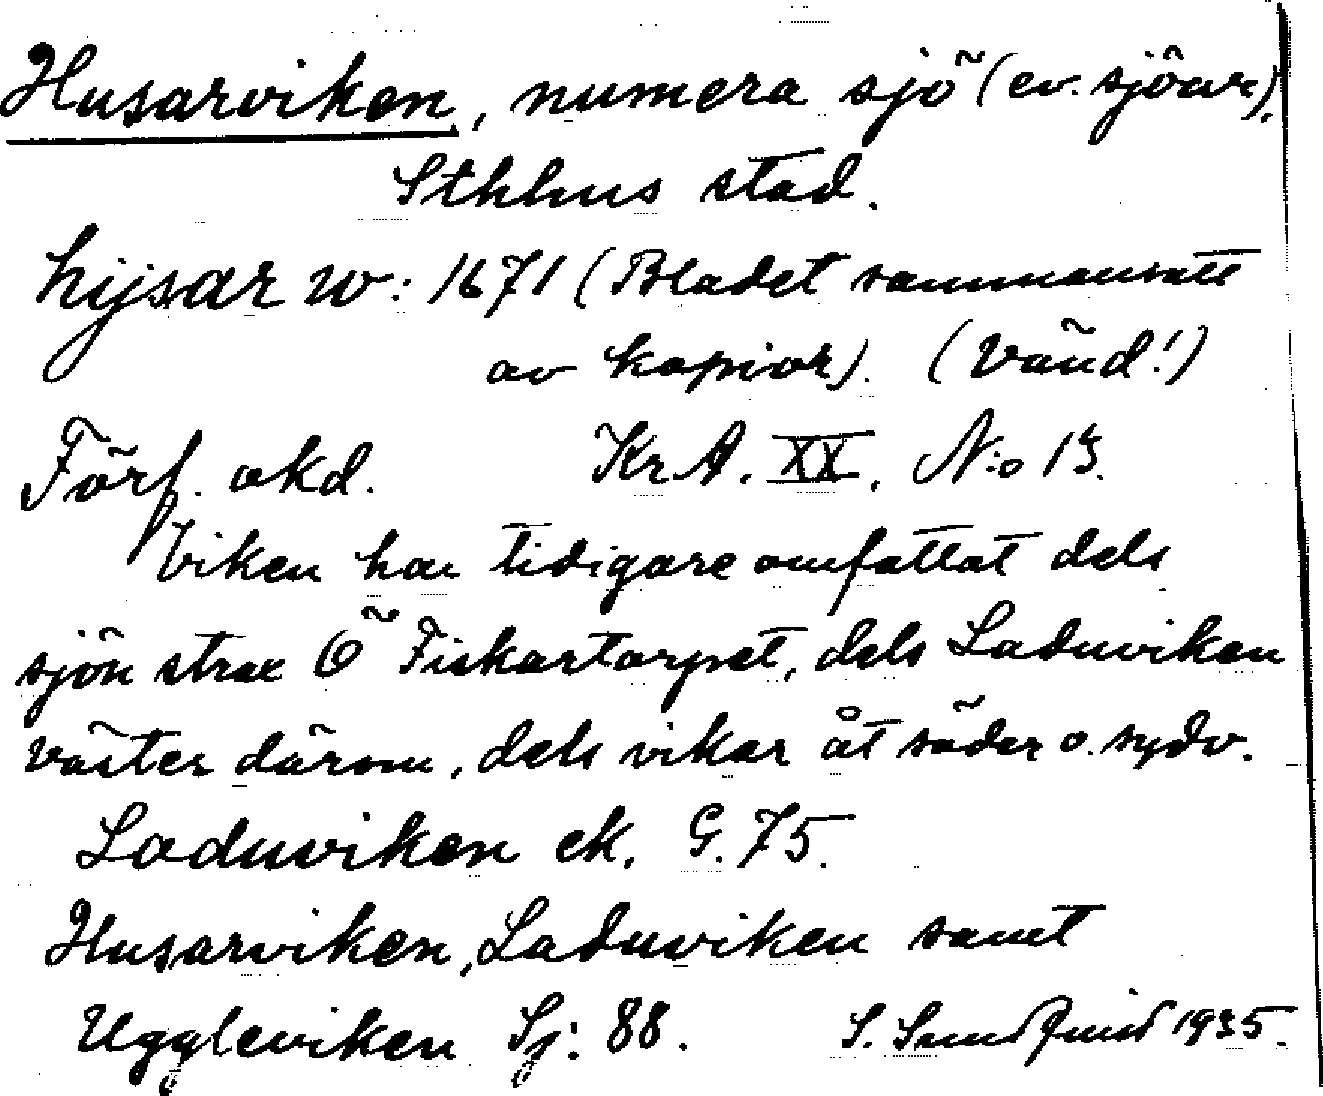 Husarviken, numera sjö (ev. sjöar).
Sthlms stad.
hijsar w: 1671 (Bladet sammansatt
av kopior). (Vänd!)
Förf. okd. KrA. XX. N:o 13.
Viken har tidigare omfattat dels
sjön strax Ö Fiskartorpet, dels Laduviken
väster därom, dels vikar åt söder o. sydv.
Laduviken ek. G. 75.
Husarviken, Laduviken samt
Uggleviken Sj: 88. S. Sundquist 1935.